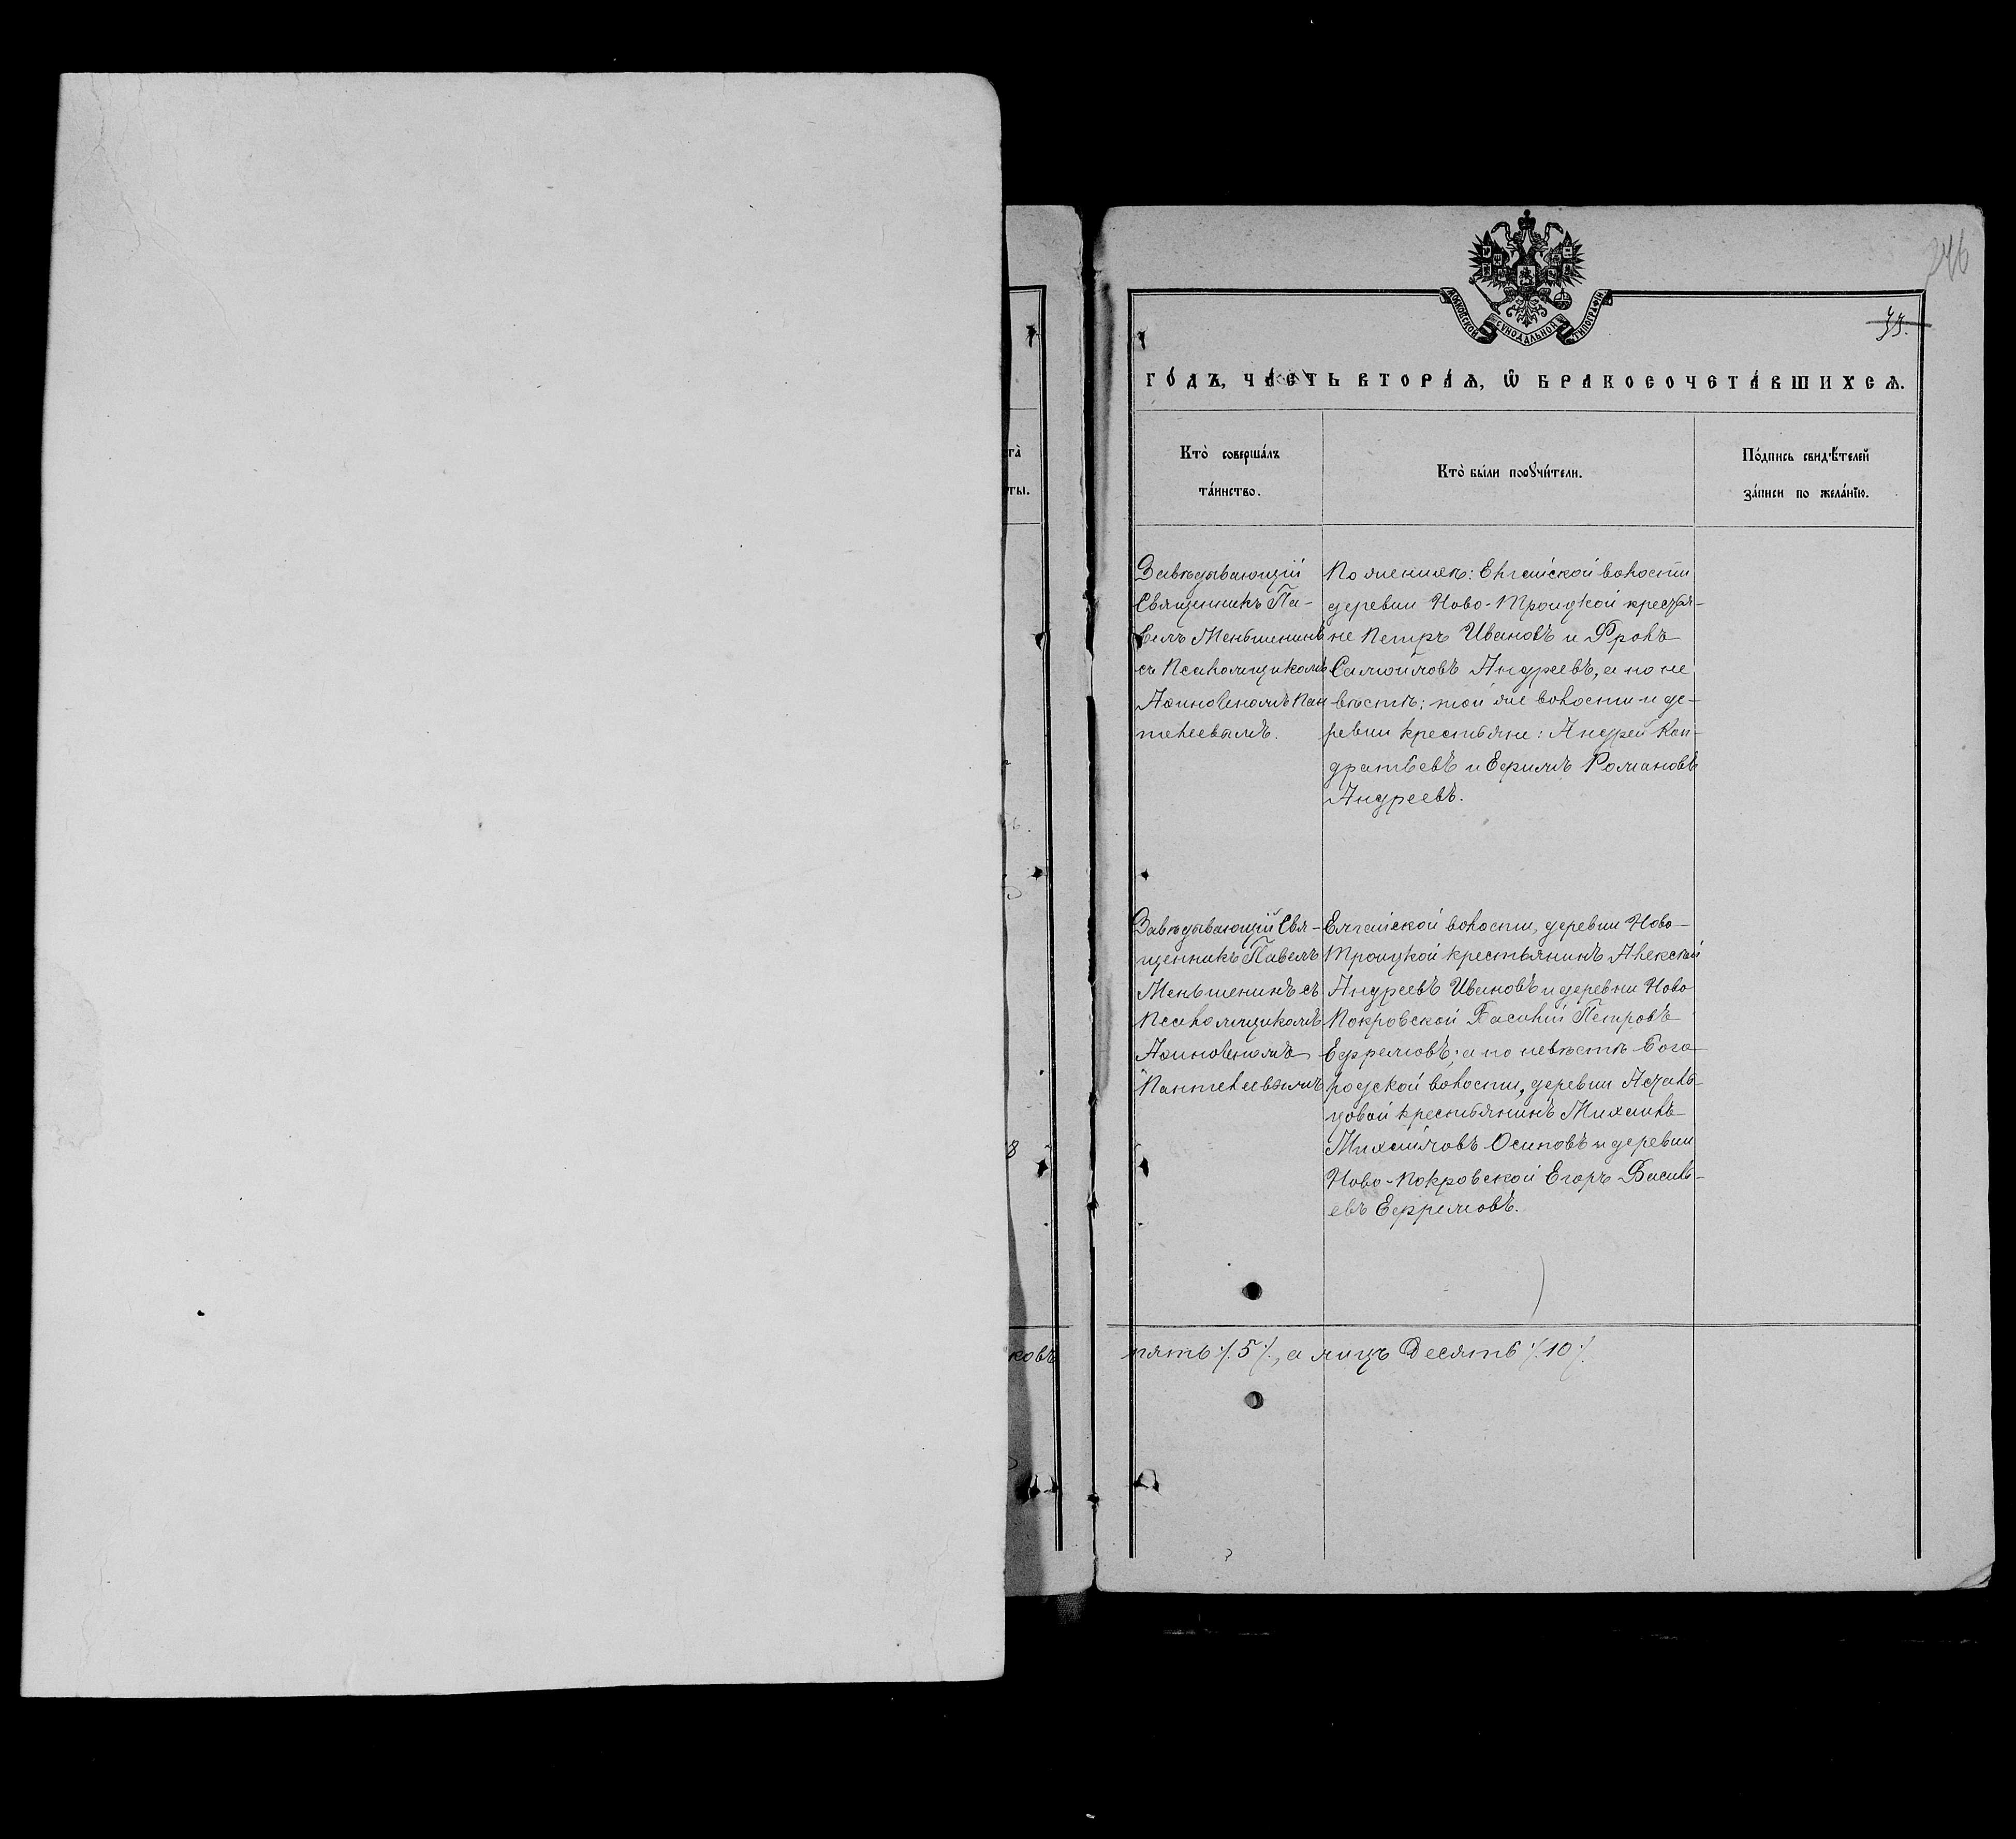 246
33.
МОСКОВСКОЙ СѴНОДАЛЬНОЙ ТИПОГРАФІИ.
ГО́ДЪ, ЧА́СТЬ ВТОРА́Ѧ, Ѽ БРАКОСОЧЕТА́ВШИХСѦ.
Кто̀ соверша́лъ
та́инство.
Кто̀ бы́ли порꙋчи́тели.
По́дпись свидѣ́телей
за́писи по жела́нїю.
та̀
ты.
Завѣдывающій
Священникъ Па-
велъ Меньшенинъ
съ Псаломщикомъ
Пан
телеевымъ.
По женихѣ: Елгайской волости
деревни Ново-Троицкой крестья-
не Петръ Ивановъ и Фролъ
Самойловъ Андреевъ, а по не
вѣстѣ: той же волости и де-
ревни крестьяне: Андрей Кон-
дратьевъ и Ефимъ Романовъ
Андреевъ.
Завѣдывающій Свя-
щенникъ Павелъ
Меньшенинъ съ
Псаломщикомъ
Пантелеевымъ
Елгайской волости, деревни Ново-
Троицкой крестьянинъ Алексѣй
Андреевъ Ивановъ и деревни Ново
Покровской Василій Петровъ
Ефремовъ; а по невѣстѣ Бого-
родской волости, деревни
крестьянинъ Михаилъ
Михайловъ Осиповъ и деревни
Ново-Покровской Егоръ Василь-
евъ Ефремовъ.
ковъ
пять ./.5./., а лицъ Десять ./.10./.